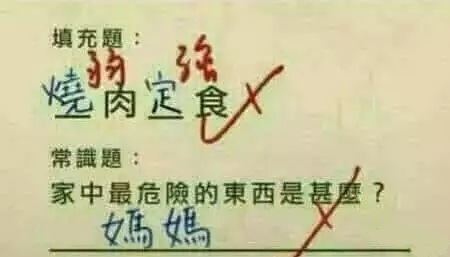 填充題：
弱 強
燒肉定食
常識題：
家中最危險的東西是甚麼？
媽媽